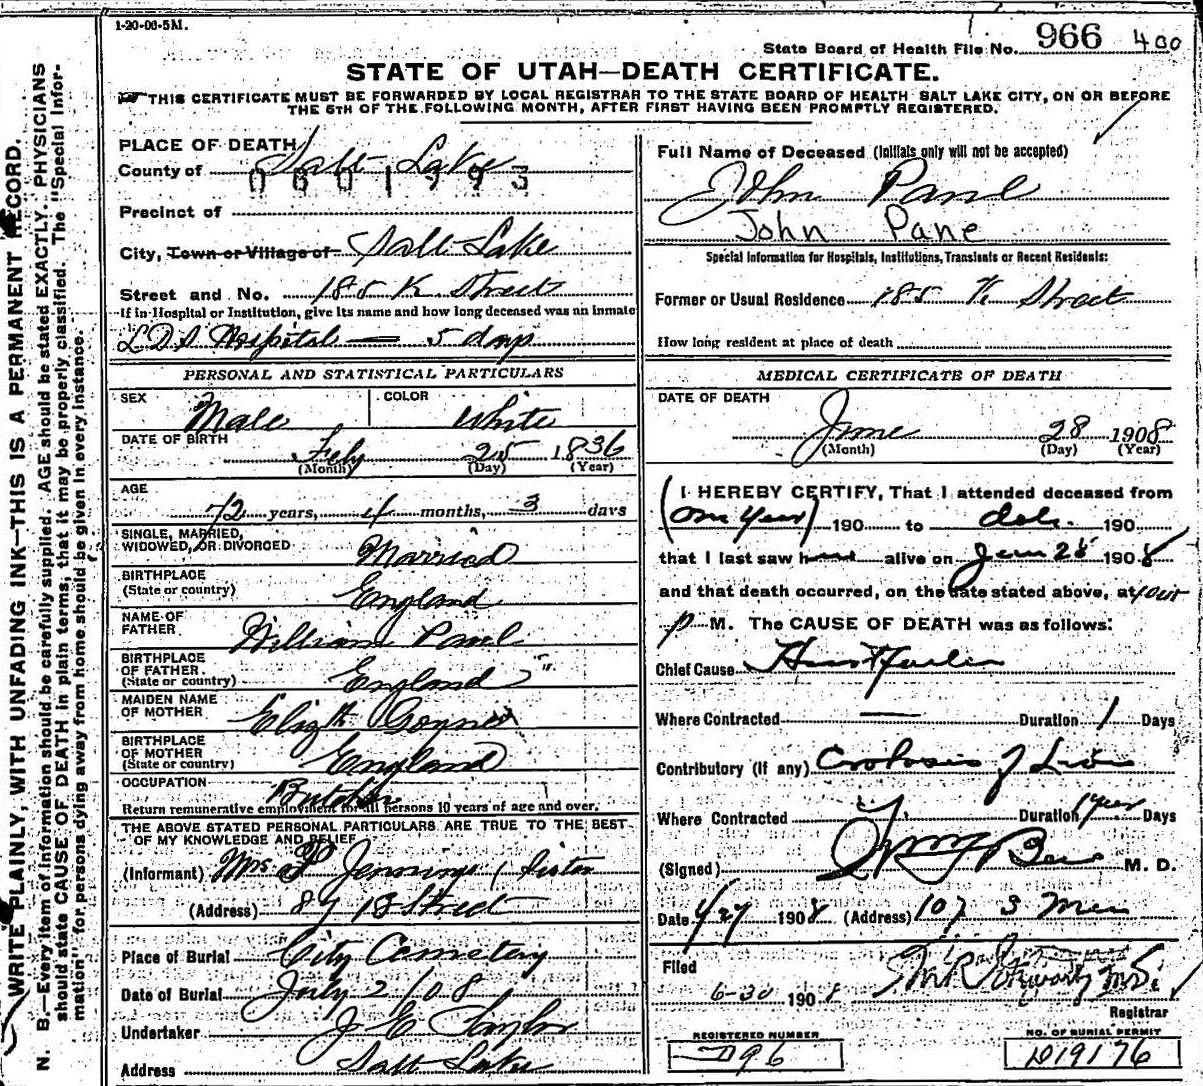 1-20-06-5M.
State Board of Health File No. 966 400
STATE OF UTAH—DEATH CERTIFICATE.
THIS CERTIFICATE MUST BE FORWARDED BY LOCAL REGISTRAR TO THE STATE BOARD OF HEALTH SALT LAKE CITY, ON OR BEFORE
THE 5TH OF THE FOLLOWING MONTH, AFTER FIRST HAVING BEEN PROMPTLY REGISTERED.
WRITE PLAINLY, WITH UNFADING INK—THIS IS A PERMANENT RECORD.
N. B.—Every item of information should be carefully supplied. AGE should be stated EXACTLY. PHYSICIANS
should state CAUSE OF DEATH in plain terms, that it may be properly classified. The "Special Infor-
mation" for persons dying away from home should be given in every instance.
PLACE OF DEATH
County of Salt Lake
0601993
Precinct of
City, Town or Village of Salt Lake
Street and No. 185 K Street
If in Hospital or Institution, give its name and how long deceased was an inmate
LDS Hospital — 5 days
PERSONAL AND STATISTICAL PARTICULARS
SEX Male COLOR White
DATE OF BIRTH Feby 25 1836
(Month) (Day) (Year)
AGE 72 years, 4 months, 3 days
SINGLE, MARRIED,
WIDOWED, OR DIVORCED Married
BIRTHPLACE
(State or country) England
NAME OF
FATHER William
BIRTHPLACE
OF FATHER
(State or country) England
MAIDEN NAME
OF MOTHER Elizth
BIRTHPLACE
OF MOTHER
(State or country) England
OCCUPATION Butcher
Return remunerative employment for all persons 10 years of age and over.
THE ABOVE STATED PERSONAL PARTICULARS ARE TRUE TO THE BEST
OF MY KNOWLEDGE AND BELIEF
(Informant) Mrs P Jennings, Sister
(Address) 87 B Street
Place of Burial City Cemetery
Date of Burial July 2/08
Undertaker J E Taylor
Address Salt Lake
Full Name of Deceased (Initials only will not be accepted)
John Pane
John Pane
Special Information for Hospitals, Institutions, Transients or Recent Residents:
Former or Usual Residence 185 K Street
How long resident at place of death
MEDICAL CERTIFICATE OF DEATH
DATE OF DEATH
June 28 1908
(Month) (Day) (Year)
I HEREBY CERTIFY, That I attended deceased from
(One Year) 190 to date. 190
that I last saw h alive on 1908
and that death occurred, on the date stated above, at four
p M. The CAUSE OF DEATH was as follows:
Chief Cause Heart failure
Where Contracted — Duration 1 Days
Contributory (If any) of Liver
Where Contracted Duration 1 year Days
(Signed) M. D.
Date 1908 (Address) 107 S Main
Filed
6-30 1908
Registrar
REGISTERED NUMBER
D96
NO. OF BURIAL PERMIT
D19176